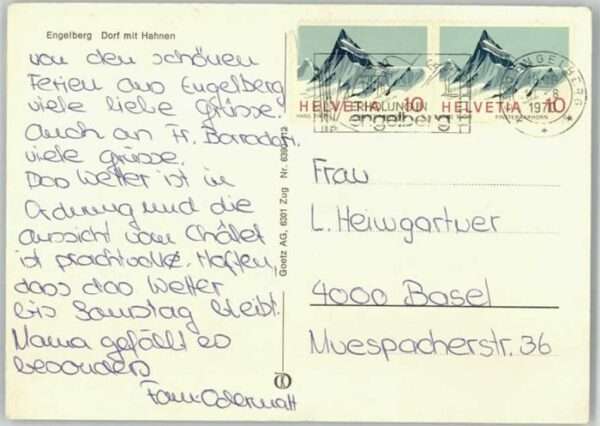 Engelberg Dorf mit Hahnen
von den schönen
Ferien aus Engelberg
viele liebe Grüsse.
Auch an Fr.
viele grüsse.
Das Wetter ist in
Ordnung und die
aussicht vom Châlet
ist prachtvoll. Hoffen,
dass das Wetter
bis Samstag bleibt.
Mama gefällt es
besonders
Fam. Odermatt
Goetz AG, 6301 Zug Nr.
HELVETIA 10
HELVETIA 10
FINSTERAARHORN
ERHOLUNG IN
engelberg
ENGELBERG
Frau
L. Heimgartner
4000 Basel
Muespacherstr. 36